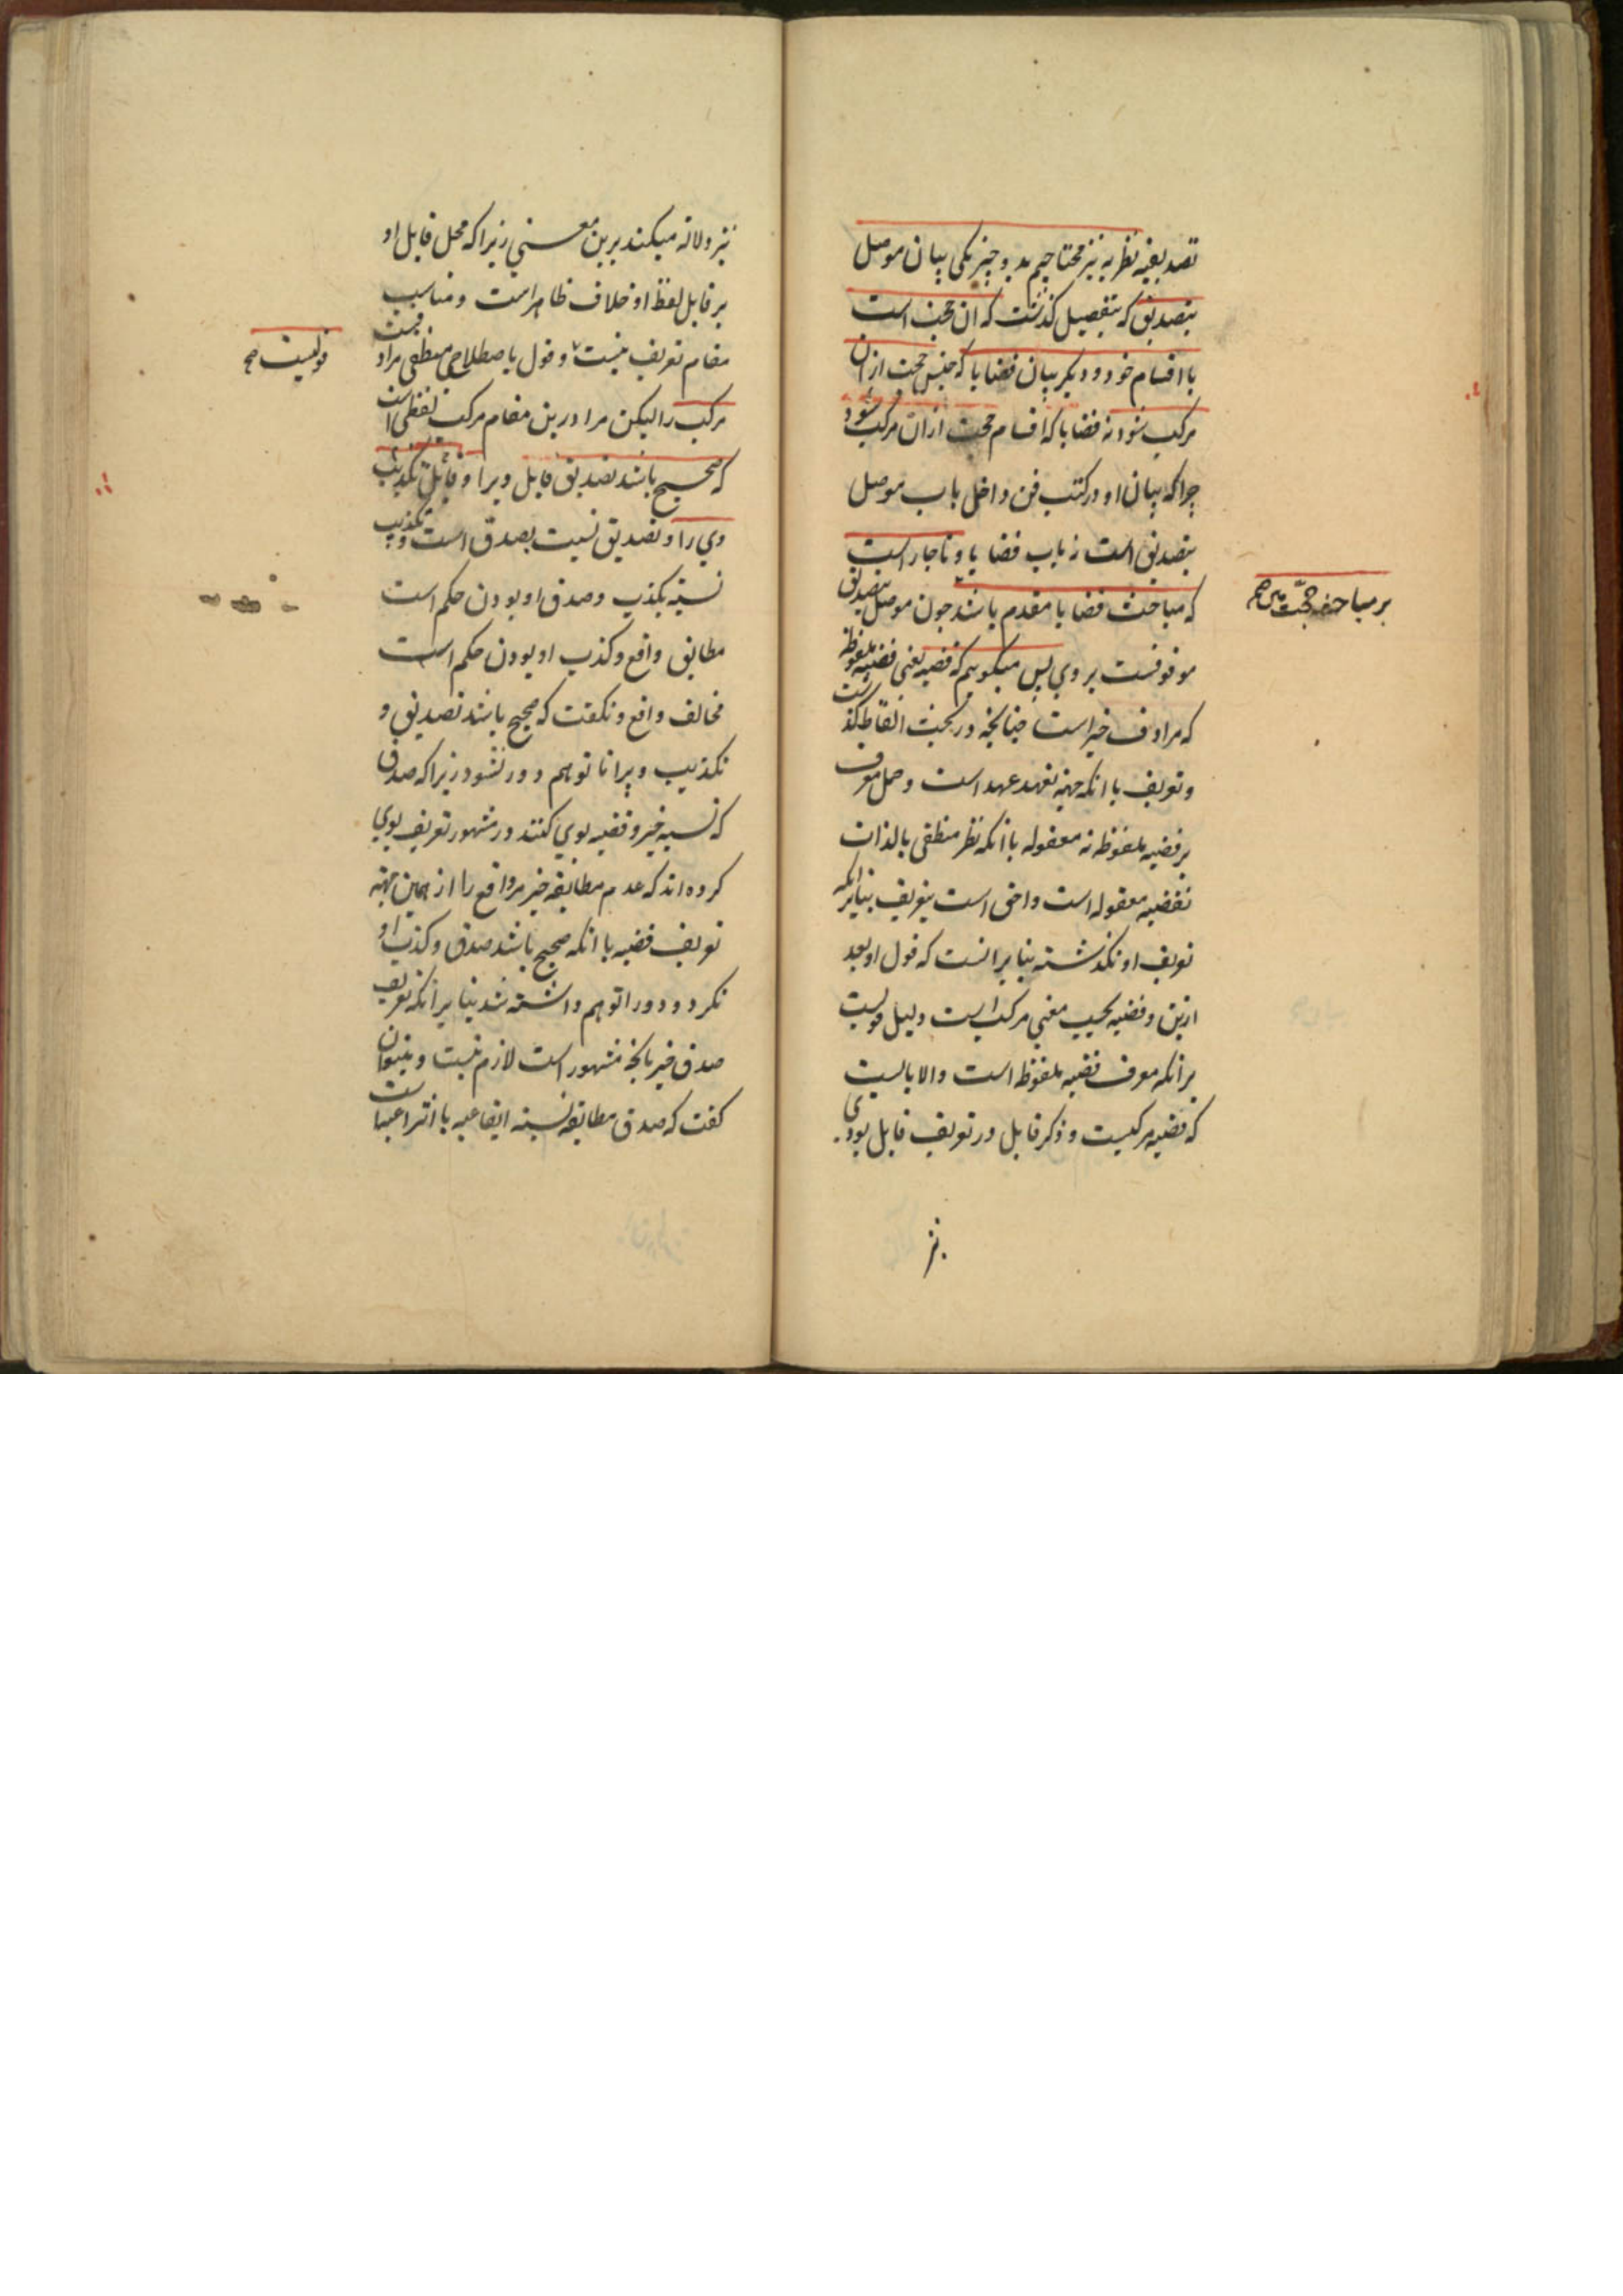 تصدیقیه نظریه نیز محتاجیم بدو چیز یکی بیان موصل
بتصدیق که بتفصیل گذشت که آن حجت است
با اقسام خود و دیگر بیان قضایا که جنس حجت ازان
مرکب شود نه قضایا که اقسام حجت ازان مرکب شود
چرا که بیان او در کتب فن داخل باب موصل
بتصدیق است نه باب قضایا و ناچار است
که مباحث قضایا مقدم باشد چون موصل بتصدیق
بر مباحث حجت صح
موقوفست بر وی پس میگوییم که قضیه یعنی قضیه ملفوظه
که مرادف خبر است چنانچه در بحث الفاظ گذشت
و تعریف با آنکه جهة تعهد عهد است و حمل معرف
بر قضیه ملفوظه نه معقوله با آنکه نظر منطقی بالذات
بقضیه معقوله است و احق است بتعریف بنابر آنکه
تعریف او نگذشته بنابر آنست که قول او بعد
ازین و قضیه بحسب معنی مرکب است دلیل قویست
بر آنکه معرف قضیه ملفوظه است و الا بایست
که قضیه مرکبست و ذکر قابل در تعریف قابل بودی
نیز
نیز دلالة میکند برین معنی زیرا که محل قابل او
بر قابل لفظ او خلاف ظاهر است و مناسب
مقام تعریف نیست و قول باصطلاح منطقی مرادفست
قولیست صح
مرکب را لیکن مراد درین مقام مرکب لفظی است
که صحیح باشد تصدیق قابل ویرا و قابل تکذیب
وی را و تصدیق نسبت بصدق است و تکذیب
نسبة بکذب و صدق او بودن حکم است
مطابق واقع و کذب او بودن حکم است
مخالف واقع و نگفت که صحیح باشد تصدیق و
تکذیب ویرا تا توهم دور نشود زیرا که صدق
که نسبة خبر و قضیه بوی کنند در مشهور تعریف بوی
کرده‌اند که عدم مطابقه خبر مر واقع را از همین جهة
تعریف قضیه با آنکه صحیح باشد صدق و کذب او
نکرد و دور را توهم داشته شد بنابر آنکه تعریف
صدق خبر بآنچه مشهور است لازم نیست و میتوان
گفت که صدق مطابقه نسبة ایقاعیه یا انتزاعیه است